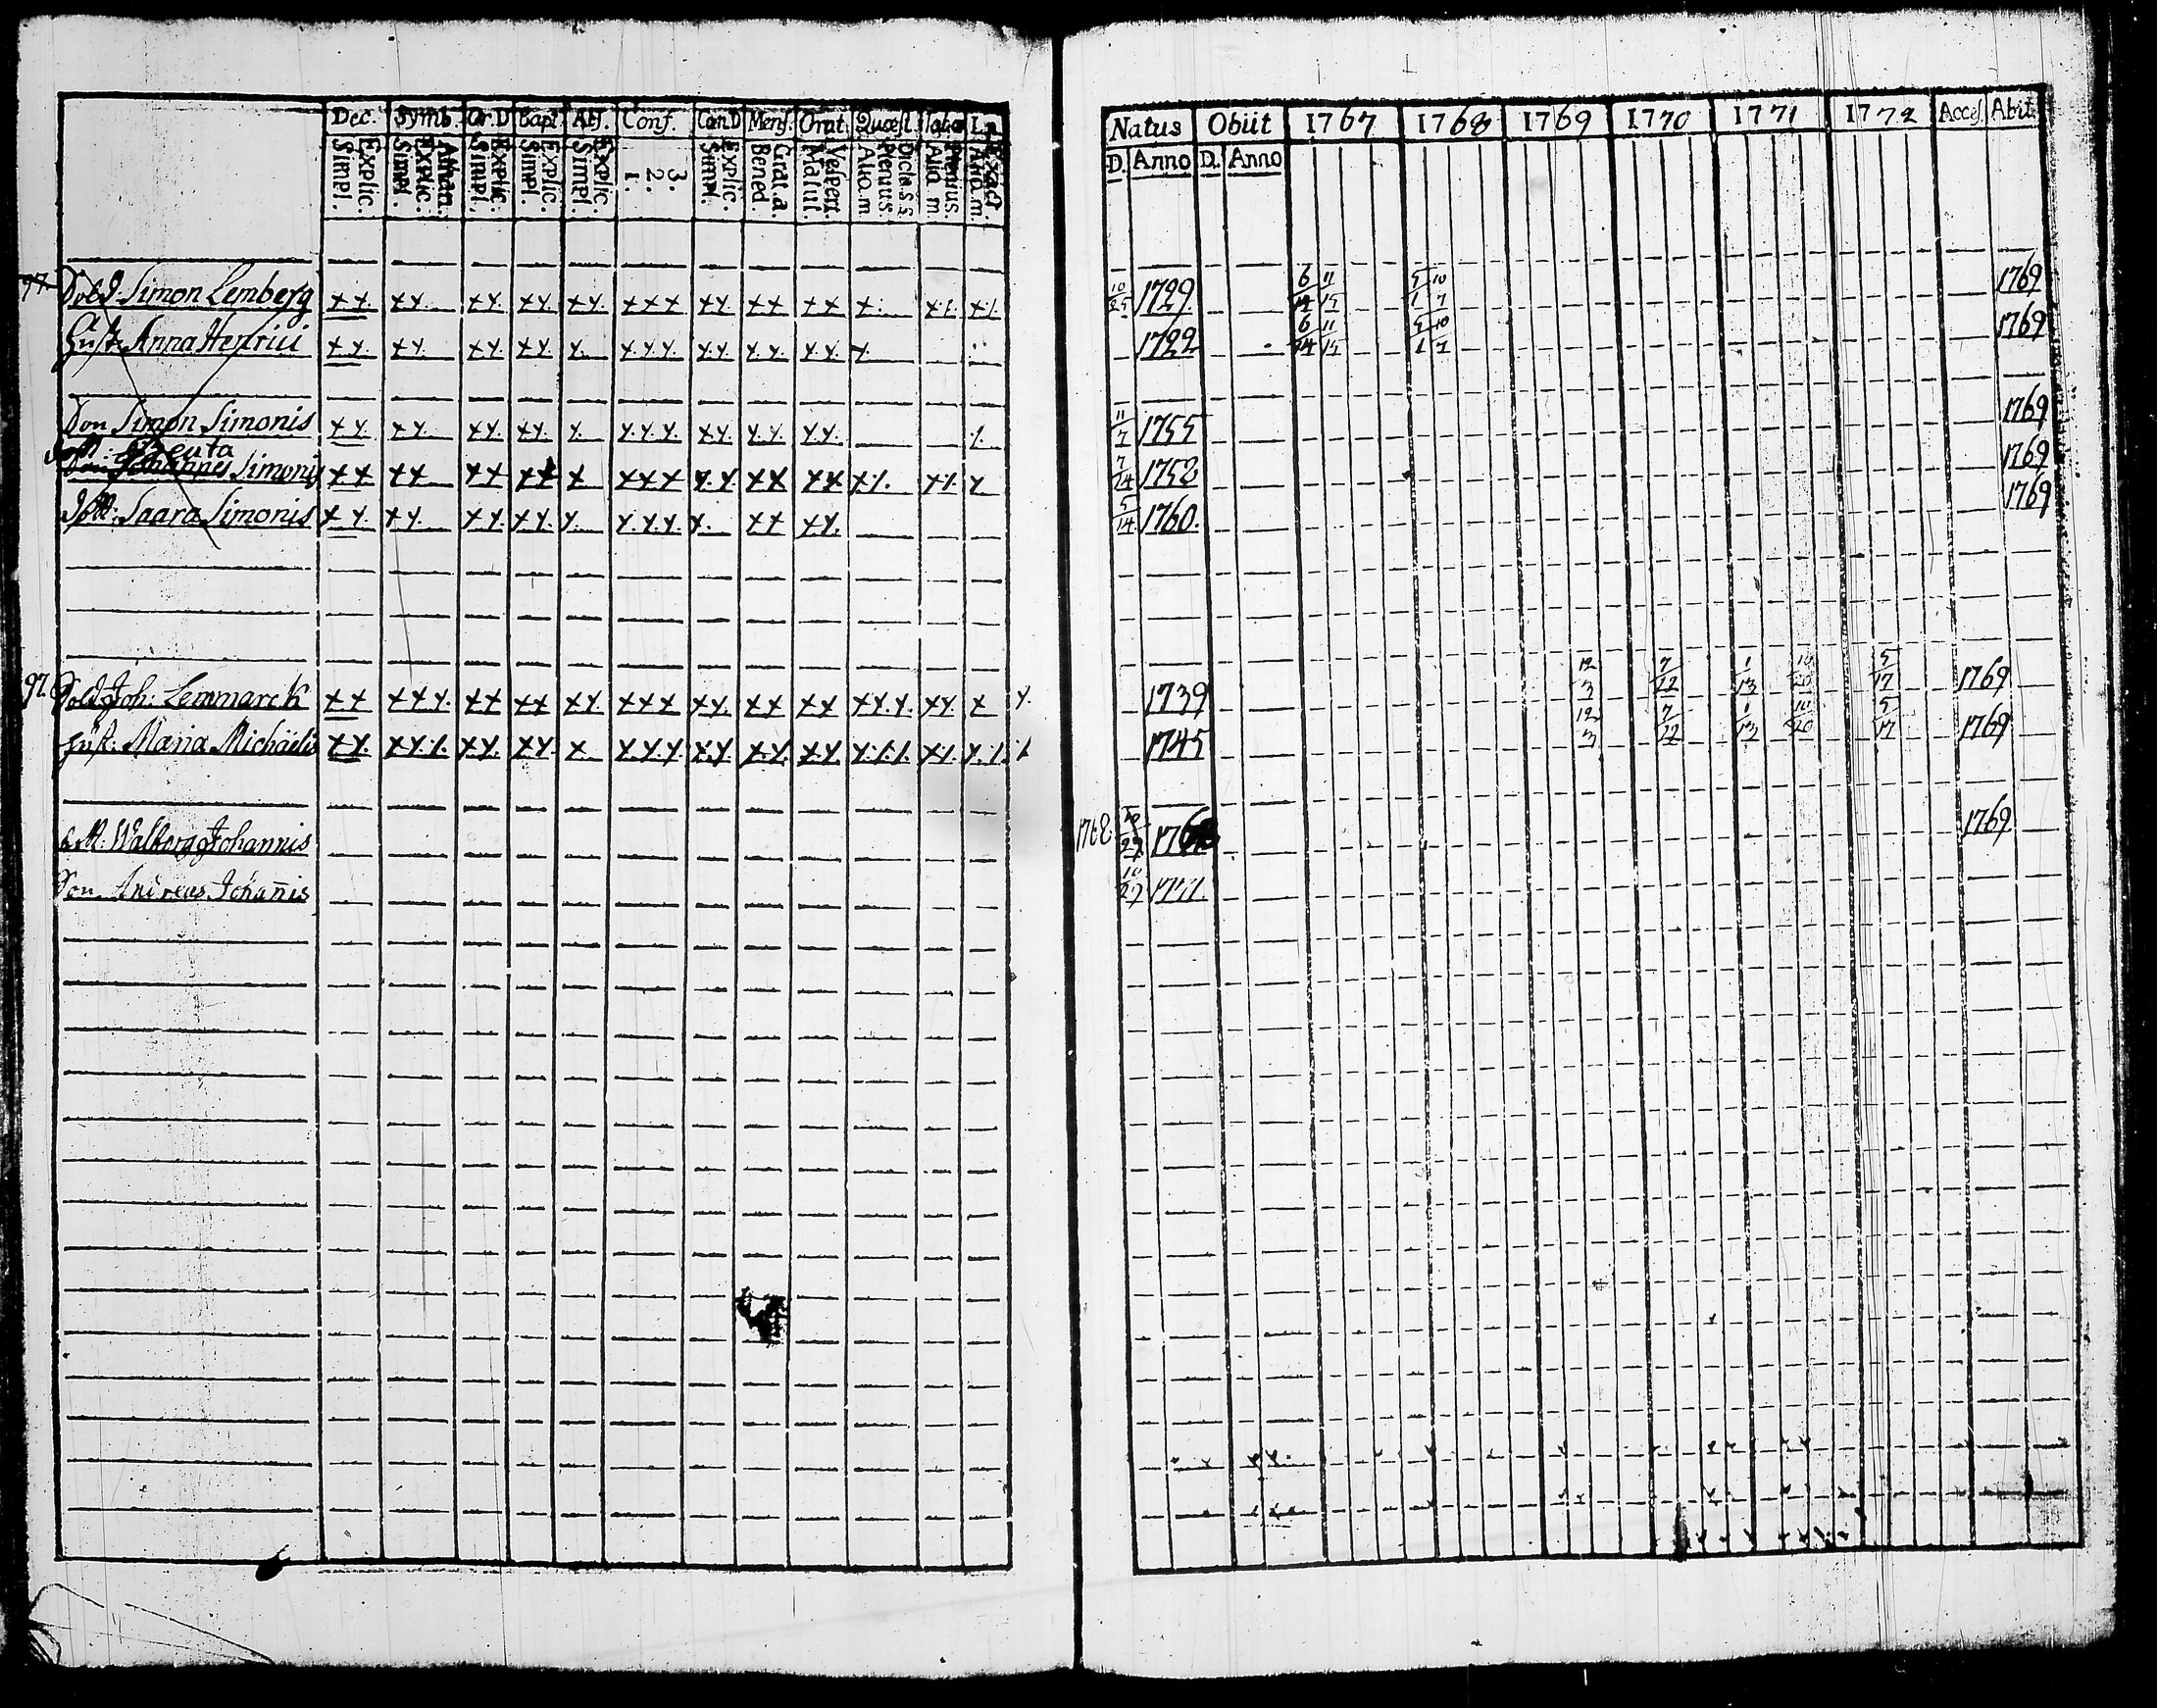 Dec. Symb. Or.D Bapt. Abs. Conf. Cœn.D Mens. Orat. Quæst. Taba L.n
Explic. Simpl. Athan. Explic. Simpl. Explic. Simpl. Explic. Simpl. Explic. Simpl. 3. 2. 1. Explic. Simpl. Grat.a. Bened. Vespert. Matut. Dicta S.S. Plenius. Aliq.m Plenius. Aliq.m Exact. Aliq.m.
Natus Obiit 1767 1768 1769 1770 1771 1772 Acces. Abit.
D. Anno D. Anno
97. Sold. Simon Lemberg 10/25 1729 6/14 11/15 5/1 10/7 1769
Hust. Anna Henrici 1722 6/14 11/15 5/1 10/7 1769
Son Simon Simonis 11/7 1755 1769
Johannes Simonis 7/24 1758 1769
Dott. Saara Simonis 5/14 1760. 1769
97. Sold Joh: Lemmarck 1739 12/3 7/22 1/13 10/20 5/17 1769
Hust. Maria Michaëlis 1745 12/3 7/22 1/13 10/20 5/17 1769
Dott. Walborg Johannis 1768 1769
Son Andreas Johan̄is 10/27 1771.